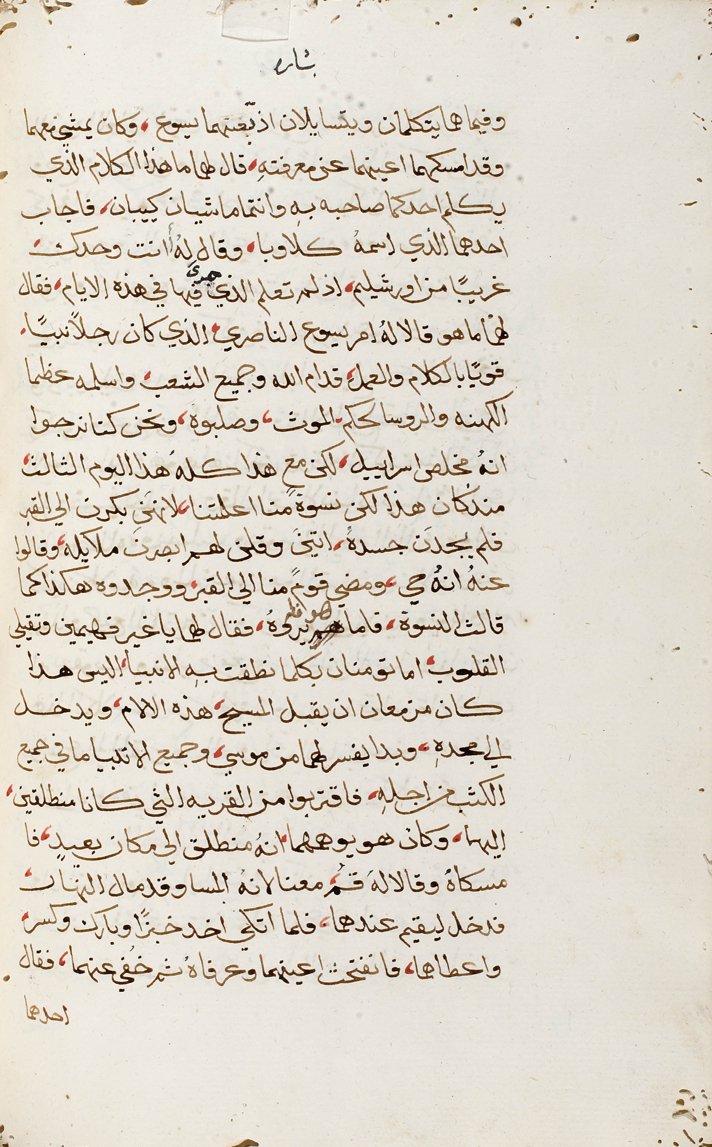 بشاره
وفيما هما يتكلمان ويتسايلان اذ تبعتهما يسوع، وكان يمشي معهما
وقد امسكهما اعينهما عن معرفته، قال لهما ما هذا الكلام الذي
يكلم احدكما صاحبه به وانتما ماشيان كييبان، فاجاب
احدهما الذي اسمهُ كلاوبا، وقال لهُ أانت وحدك
غريبًا من اورشليم، اذ لم تعلم الذي جرى فيها في هذه الايام، فقال
لهما ما هو قالا لهُ امر يسوع الناصري، الذي كان رجلاً نبيًا،
قويًا بالكلام والعمل، قدام الله وجميع الشعب، واسلمه عظما
الكهنه والروسا لحكم الموت، وصلبوه، ونحن كنا نرجوا
انهُ مخلص اسراييل، لكن مع هذا كلهُ هذا اليوم الثالث
مند كان هذا لكن نسوةً منا اعلمتنا، لانهَنَ بكرن الى القبر
فلم يجدَن جسدهُ، اتينَ وقلن لهم ابصرن ملايكه، وقالوا
عنهُ انهُ حي، ومضي قومً منا الي القبر، ووجدوه هكذا كما
قالت النسوة، فاما هو فلم يروهُ، فقال لهما يا غير فهيمين وتقيلي
القلوب، اما تومنان بكلما نطقت به الانبيا، اليس هذا
كان مزمعان ان يقبل المسيح، هذه الالام، ويدخل
الي مجده، وبدا يفسر لهما من موسي، وجميع الانبيا ما في جميع
الكتب من اجله، فاقتربوا من القريه التي كانا منطلقين،
اليها، وكان هو يوهمهما، انهُ منطلق الي مكان بعيدٍ، فا
مسكاهُ وقالا لهُ قمُ معنا لانهُ المسا وقد مال النهار
فدخل ليقيم عندهما، فلما اتكي اخد خبزًا وبارك وكسر،
واعطاهما، فانفتحت اعينهما وعرفاهُ ثم خُفي عنهما، فقال
احدهما